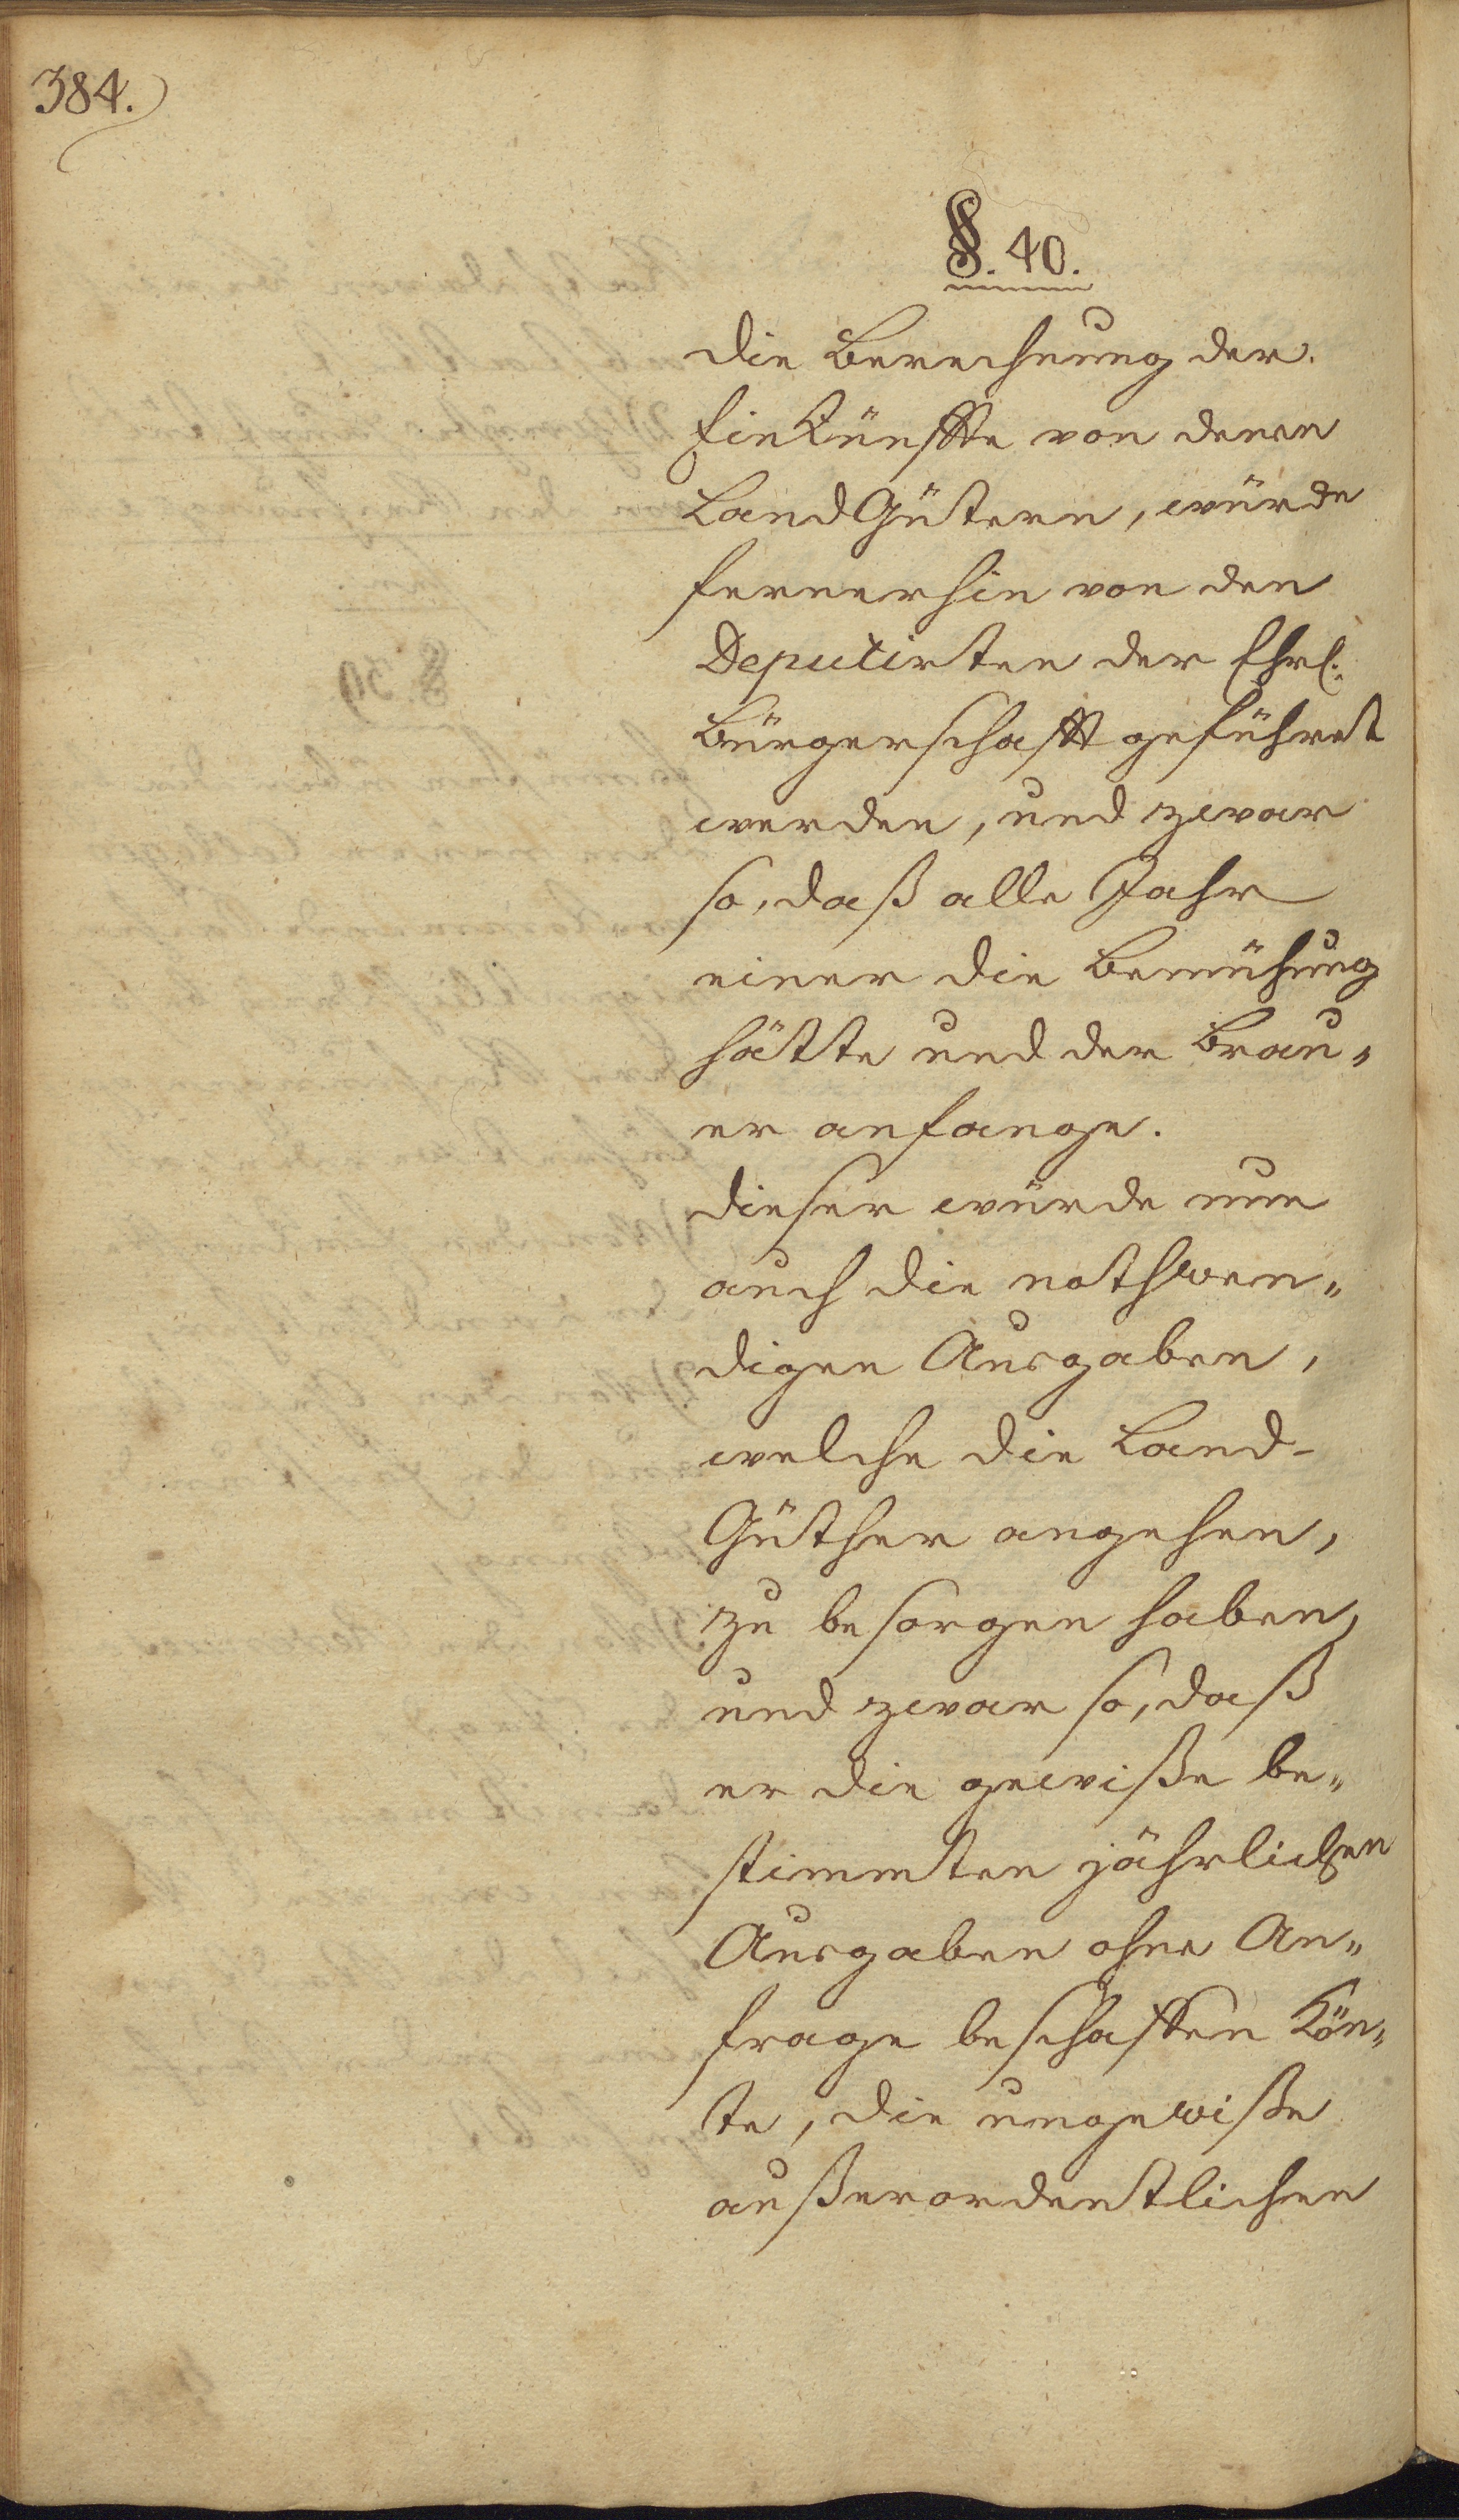 384.
§. 40.
die Berechnung der
Einkünffte von denen
Land Gütern, würde
fernerhin von den
Deputirten der Ehrl:
Bürgerschafft geführet
werden, und zwar
so, daß alle Jahr
einer die Bemühung
hätte und der Brau„
er anfange.
dieser würde nun
auch die nothwen„
digen Ausgaben,
welche die Land-
Güther angehen,
zu besorgen haben,
und zwar so, daß
er die gewiße be„
stimmten jährlichen
Ausgaben ohne An„
frage beschaffen kön„
te, die ungewiße
außerordentlichen